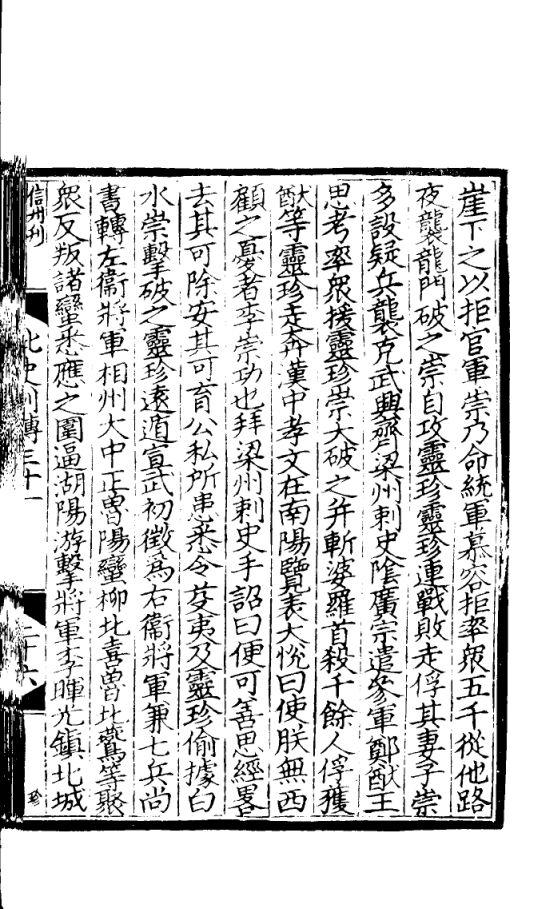 崖下之以拒官軍崇乃命統軍慕容拒率衆五千從他路
夜襲龍門破之崇自攻靈珍靈珍連戰敗走俘其妻子崇
多設疑兵襲克武興齊梁州刺史陰廣宗遣叅軍鄭猷王
思考率衆援靈珍崇大破之并斬婆羅首殺千餘人俘獲
猷等靈珍走奔漢中孝文在南陽覽表大恱曰使朕無西
顧之憂者李崇功也拜梁州刺史手詔曰便可善思經畧
去其可除安其可育公私所患悉令芟夷及靈珍偷據白
水崇擊破之靈珍遠遁宣武初徵爲右衞將軍兼七兵尚
書轉左衞將軍相州大中正魯陽蠻柳北喜魯北鷰等聚
衆反叛諸蠻悉應之圍逼湖陽游擊將軍李暉光鎮北城
信州刋
北史列傳三十一
二十六
珍